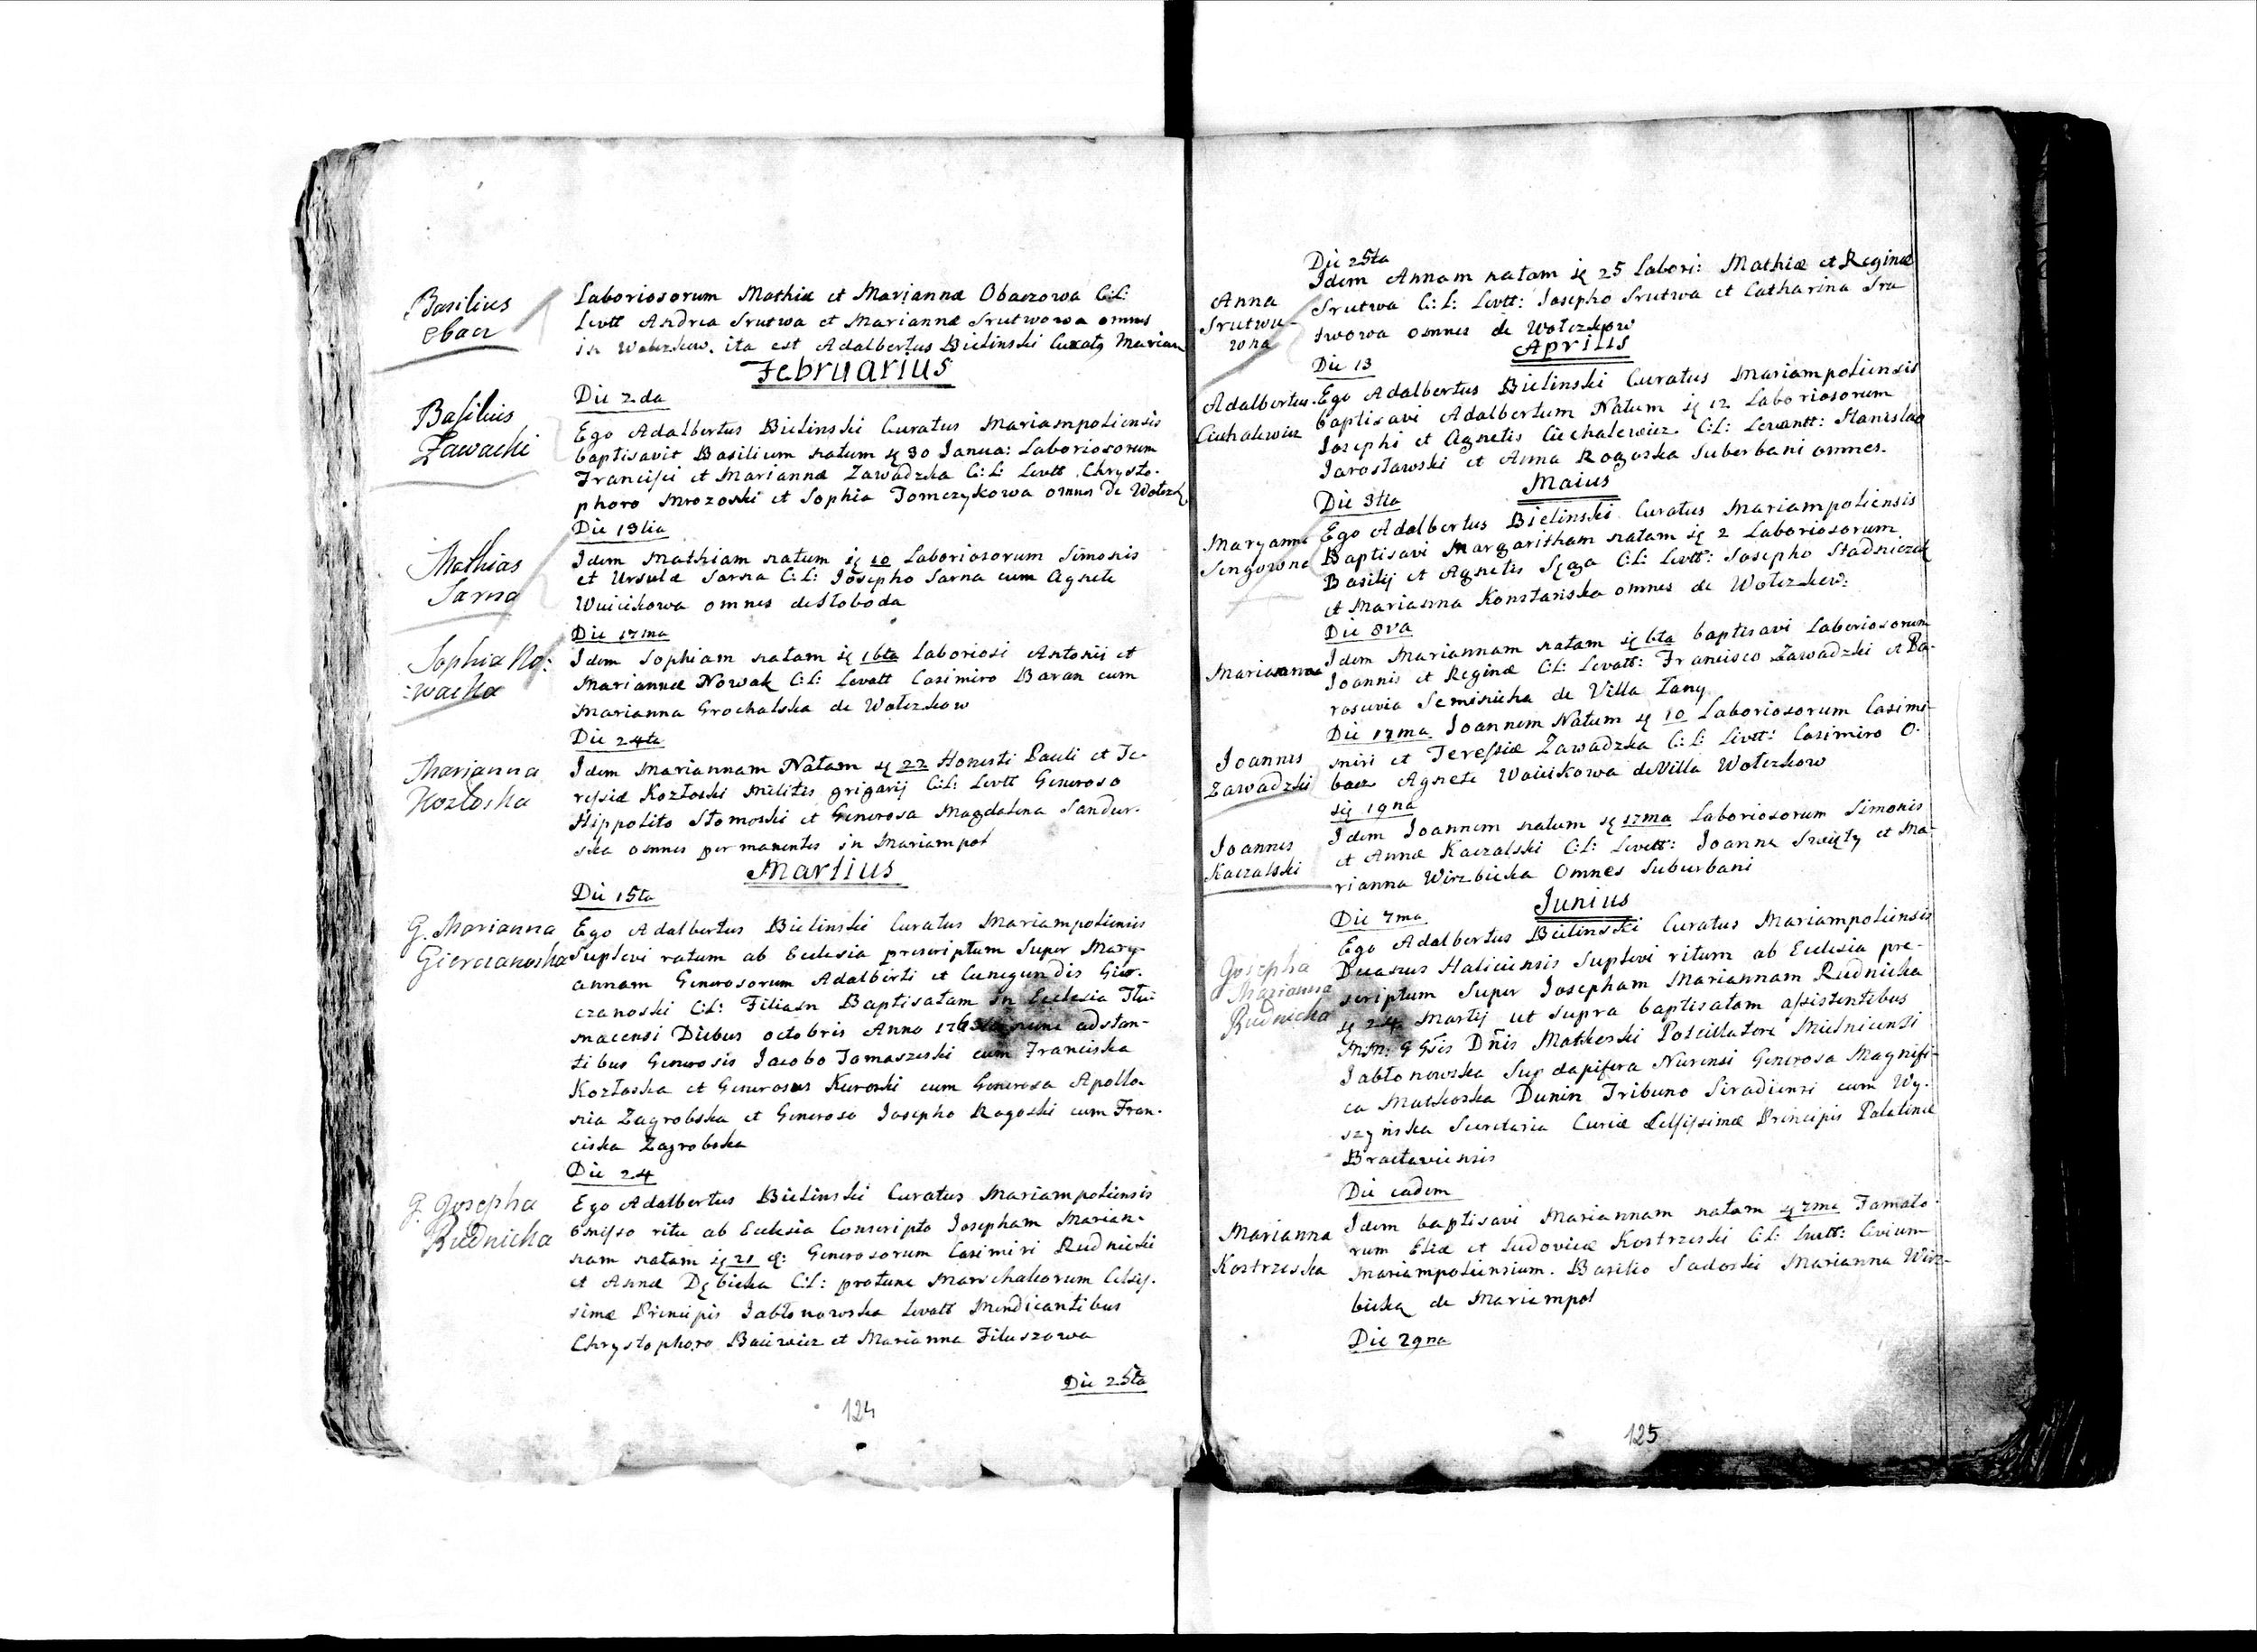 Basilius
Obacz
Laboriosorum Mathiæ et Mariannæ Obaczowa C:L:
Levtt Andrea Srutwa et Mariannæ Srutwowa omnes
in Wołczkow. ita est Adalbertus Bielinski Curats Mariam
Februarius
Die 2da
Basilius
Zawacki
Ego Adalbertus Bielinski Curatus Mariampoliensis
baptisavit Basilium natum ię 30 Janua: Laboriosorum
Francisci et Mariannæ Zawadzka C:L: Levtt Chrysto-
phoro Mrozoski et Sophia Tomczykowa omnes de Wołczk
Die 13tia
Mathias
Sarna
Idem Mathiam natum ię 10 Laboriosorum Simonis
et Ursulæ Sarna C:L: Josepho Sarna cum Agnete
Wuicikowa omnes de Słoboda
Die 17ma
Sophia No:
:wacka
Idem Sophiam natam ię 16ta Laboriosi Antonii et
Mariannæ Nowak C:L: Levatt Casimiro Baran cum
Marianna Grochalska de Wołczkow
Die 24ta
Marianna
Kozłoska
Idem Mariannam Natam ię 22 Honesti Pauli et Te-
ressiæ Kozłoski Militis grigarij C:L: Levtt Generoso
Hippolito Słomoski et Generosa Magdalena Sandur-
ska omnes permanentes in Mariampol
Martius
Die 15ta
G. Marianna
Gierczanoska
Ego Adalbertus Bielinski Curatus Mariampoliensis
Suplevi ratum ab Eclesia prescriptum Super Mary-
annam Generosorum Adalberti et Cunegundis Gier-
czanoski C:L: Filiam Baptisatam in Eclesia Tłu-
macensi Diebus octobris Anno nunc adstan-
tibus Generosis Jacobo Tomaszeski cum Franciska
Kozłoska et Generosus Kuroski cum Generosa Apollo-
nia Zagrobska et Generoso Josepho Rogoski cum Fran-
ciska Zagrobska
Die 24
G. Josepha
Rudnicka
Ego Adalbertus Bielinski Curatus Mariampoliensis
omisso ritu ab Eclesia Conscripto Josepham Marian-
nam natam ię 21 Generosorum Casimiri Rudnicki
et Annæ Dębicka C:L: protunc Marschalcorum Celsis-
simæ Principis Jabłonowska Levatt Mendicantibus
Chrystophoro Baiewicz et Marianna Filuszowa
Die 25ta
124
Die 25ta
Anna
Srutwu-
wna
Idem Annam natam ię 25 Labori: Mathiæ et Reginæ
Srutwa C:L: Levtt: Josepho Srutwa et Catharina Sru
twowa omnes de Wołczkow
Aprilis
Die 13
Adalbertus
Ciechalewicz
Ego Adalbertus Bielinski Curatus Mariampoliensis
baptisavi Adalbertum Natum ię 12 Laboriosorum
Josephi et Agnetis Ciechalewicz C:L: Levantt: Stanislao
Jarosławski et Anna Rogoska Suberbani omnes.
Maius
Die 3tia
Maryanna
Sengowna
Ego Adalbertus Bielinski Curatus Mariampoliensis
Baptisavi Margaritham natam ię 2 Laboriosorum
Basilij et Agnetis Sęga C:L: Levtt: Josepho Stadniczuk
et Marianna Konstańska omnes de Wołczkow:
Die 8va
Marianna
Idem Mariannam natam ię 6ta baptisavi Laboriosorum
Joannis et Reginæ C:L: Levatt: Francisco Zawadzki et Pa-
rascevia Seminicha de Villa Łany
Joannis
Zawadzki
Die 17ma Joannem Natum ię 10 Laboriosorum Casimi-
miri et Teressiæ Zawadzka C:L: Livtt: Casimiro O-
bacz Agnete Woicikowa de Villa Wołczkow
się 19na
Joannis
Kaczalski
Idem Joannem natum ię 17ma Laboriosorum Simonis
et Annæ Kaczalski C:L: Levett: Joanne Święty et Ma-
rianna Wirzbicka Omnes Suburbani
Junius
Die 7ma
Josepha
Marianna
Rudnicka
Ego Adalbertus Bielinski Curatus Mariampoliensis
Decanus Haliciensis Suplevi ritum ab Eclesia pre-
scriptum Super Josepham Mariannam Rudnicka
ię 24 Martij ut Supra baptisatam assistentibus
Dnis Matkoski Potcillatore Mielnicensi
Jabłonowska Subdapifera Nurensi Generosa Magnifi-
ca Matkoska Dunin Tribuno Siradiensi cum Wy-
szyńska Secretaria Curiæ Celsissimæ Principis Palatinæ
Braclaviensis
Die eadem
Marianna
Kostrzeska
Idem baptisavi Mariannam natam ię 7ma Famato-
rum Eliæ et Ludovicæ Kostrzeski C:L: Levtt: Civium
Mariampoliensium. Basilio Sadoski Marianna Wirz-
bicka de Mariampol
Die 29na
125